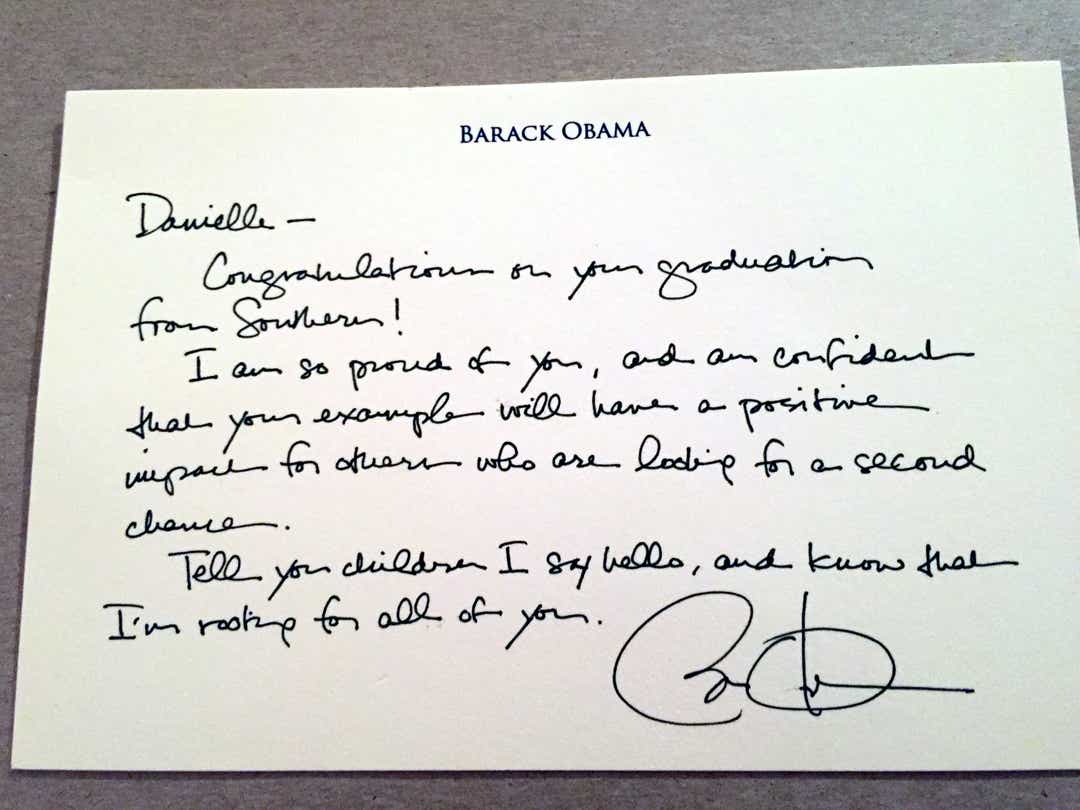 BARACK OBAMA
Danielle —
Congratulations on your graduation
from Southern!
I am so proud of you, and am confident
that your example will have a positive
impact for others who are looking for a second
chance.
Tell your children I say hello, and know that
I'm rooting for all of you.